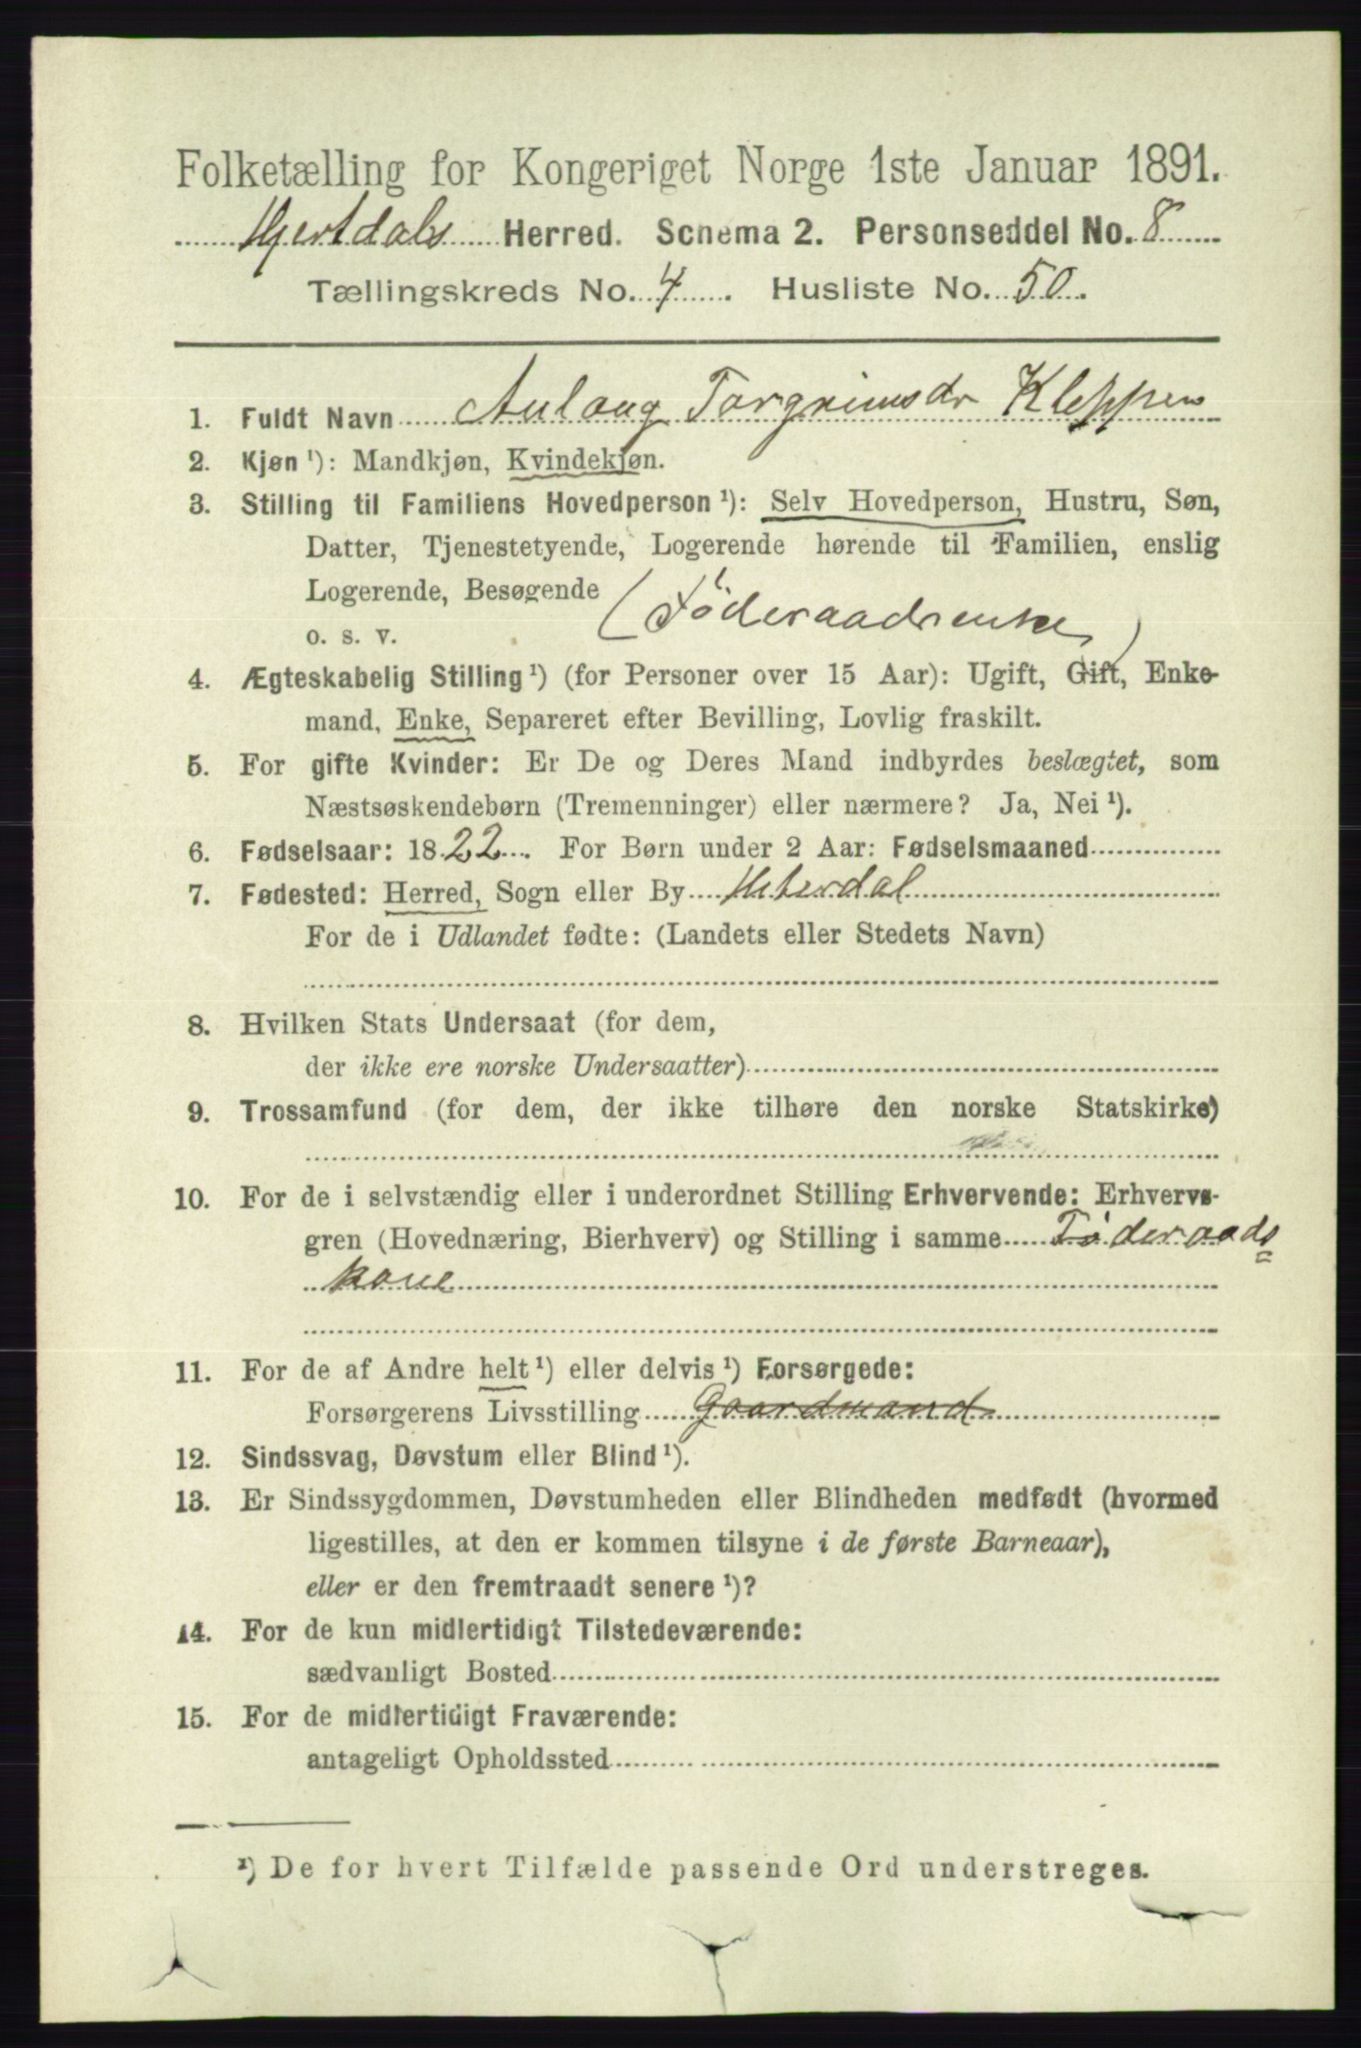 Folketælling for Kongeriget Norge 1ste Januar 1891.
Hjertdals Herred. Schema 2. Personseddel No. 8
Tællingskreds No. 4. Husliste No. 50.
1. Fuldt Navn Aslaug Torgrimsdr Kleppen
2. Kjøn ¹): Mandkjøn, Kvindekjøn.
3. Stilling til Familiens Hovedperson ¹): Selv Hovedperson, Hustru, Søn,
Datter, Tjenestetyende, Logerende hørende til Familien, enslig
Logerende, Besøgende
o. s. v. (Föderaadsenke)
4. Ægteskabelig Stilling ¹) (for Personer over 15 Aar): Ugift, Gift, Enke-
mand, Enke, Separeret efter Bevilling, Lovlig fraskilt.
5. For gifte Kvinder: Er De og Deres Mand indbyrdes beslægtet, som
Næstsøskendebørn (Tremenninger) eller nærmere? Ja, Nei ¹).
6. Fødselsaar: 1822. For Børn under 2 Aar: Fødselsmaaned
7. Fødested: Herred, Sogn eller By Hiterdal
For de i Udlandet fødte: (Landets eller Stedets Navn)
8. Hvilken Stats Undersaat (for dem,
der ikke ere norske Undersaatter)
9. Trossamfund (for dem, der ikke tilhøre den norske Statskirke)
10. For de i selvstændig eller i underordnet Stilling Erhvervende: Erhvervs-
gren (Hovednæring, Bierhverv) og Stilling i samme Föderaads=
kone
11. For de af Andre helt ¹) eller delvis ¹) Forsørgede:
Forsørgerens Livsstilling Gaardmand
12. Sindssvag, Døvstum eller Blind ¹).
13. Er Sindssygdommen, Døvstumheden eller Blindheden medfødt (hvormed
ligestilles, at den er kommen tilsyne i de første Barneaar),
eller er den fremtraadt senere ¹)?
14. For de kun midlertidigt Tilstedeværende:
sædvanligt Bosted
15. For de midlertidigt Fraværende:
antageligt Opholdssted
¹) De for hvert Tilfælde passende Ord understreges.